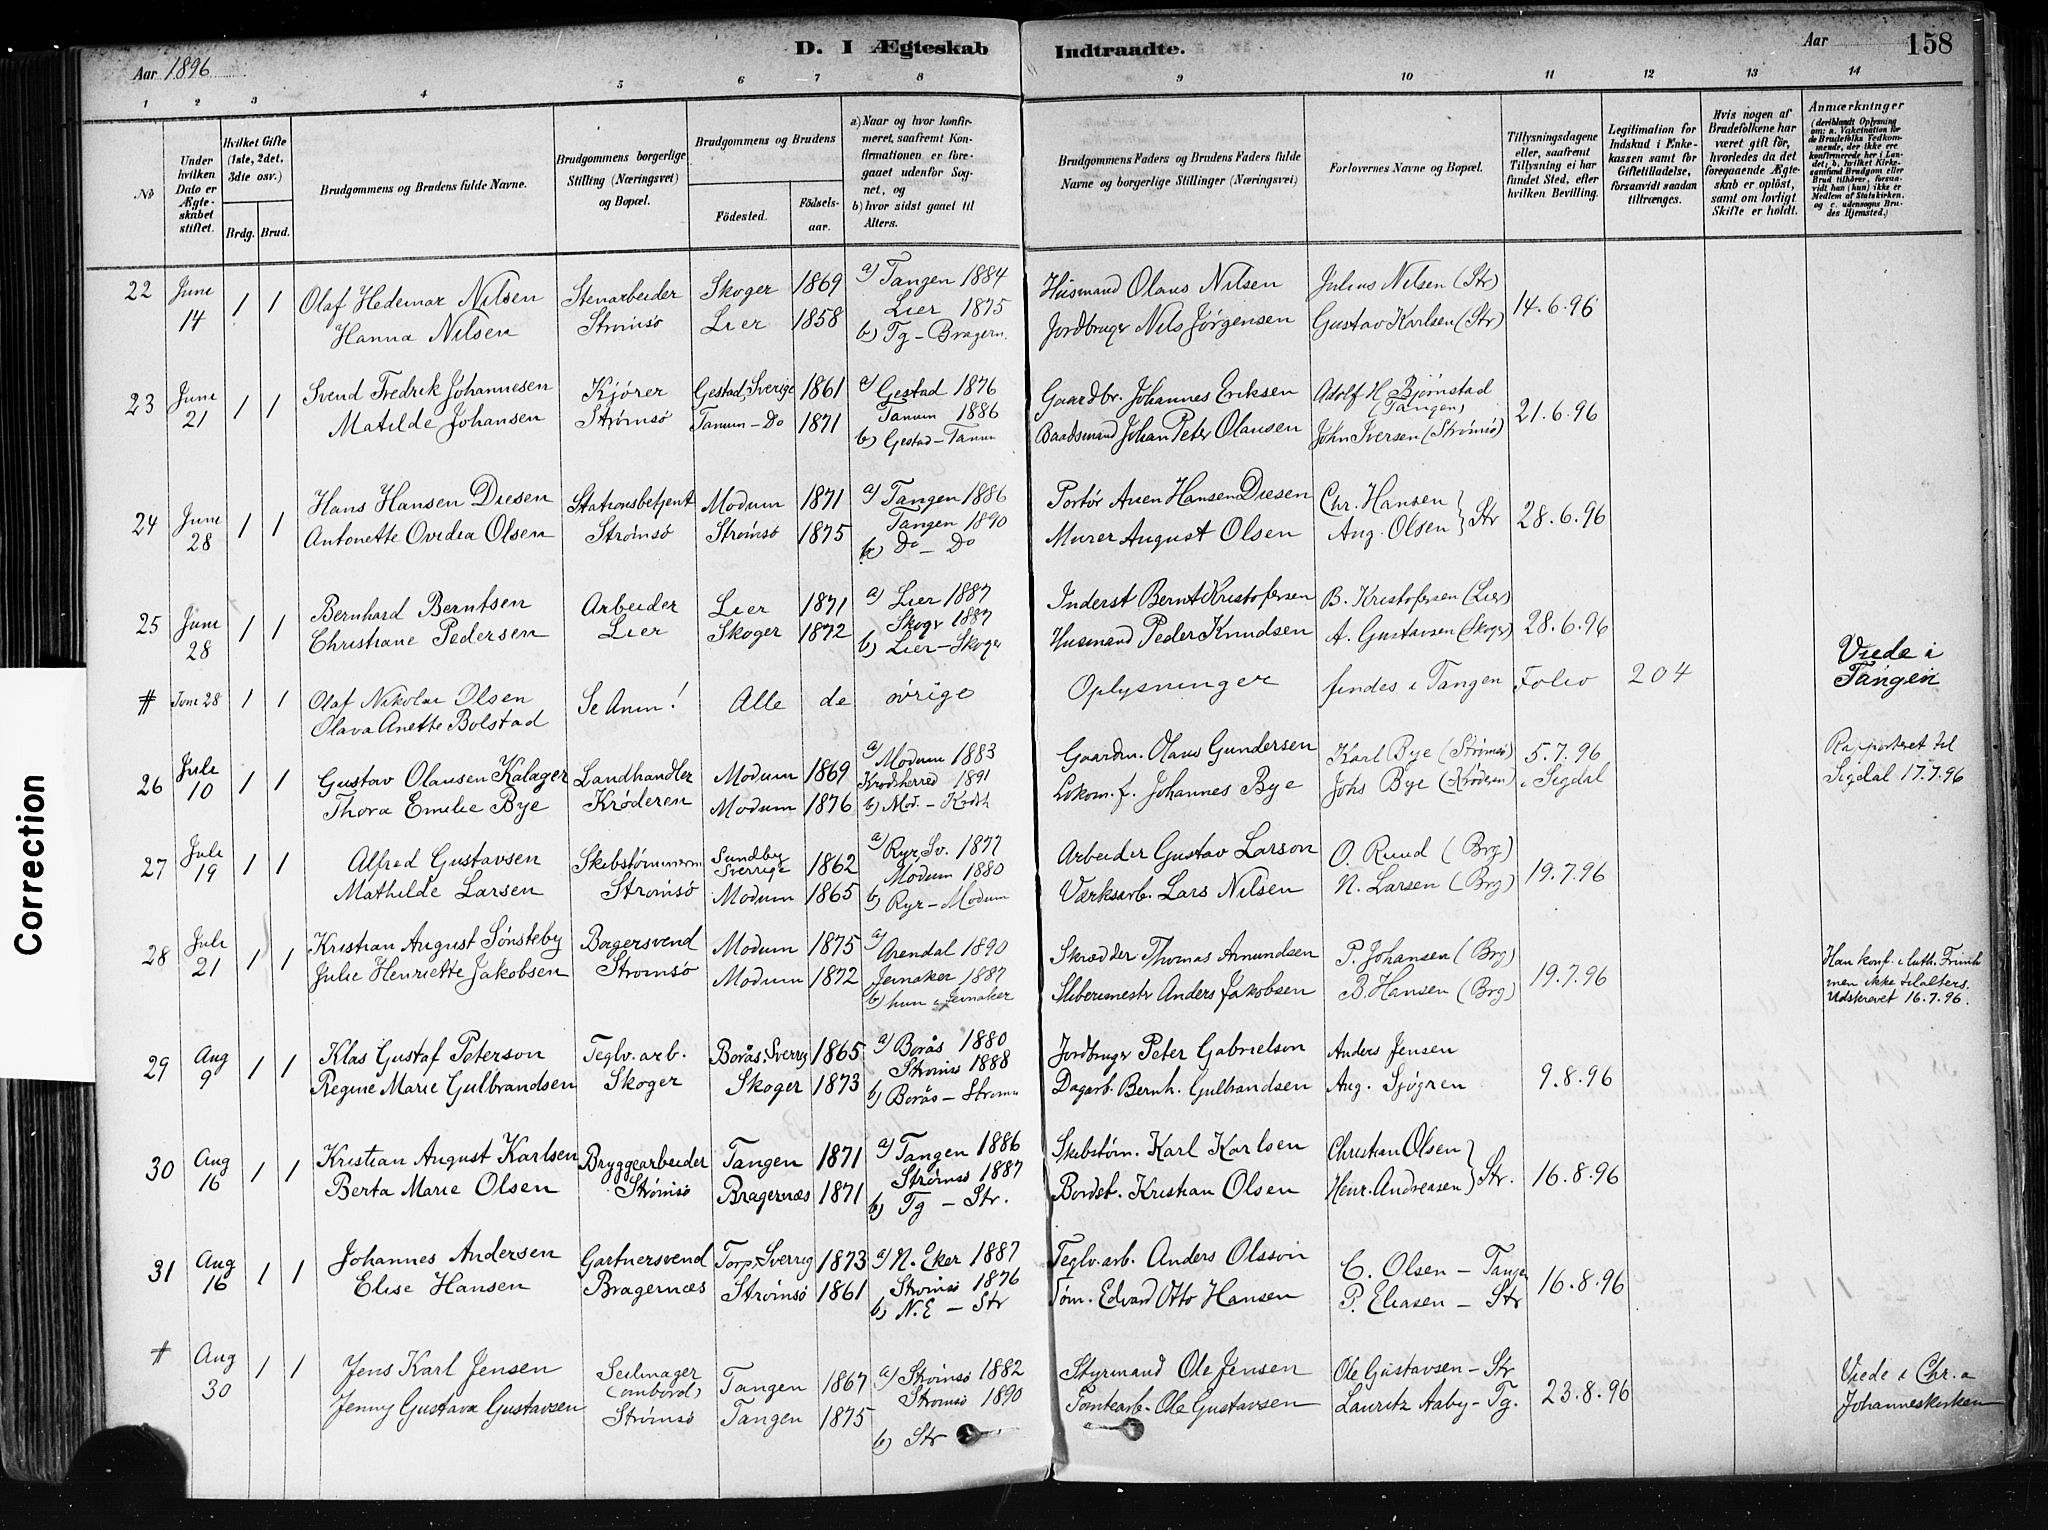 D. I Ægteskab Indtraadte.
Aar 1896
Aar 158
1 2 3 4 5 6 7 8 9 10 11 12 13 14
No
Under hvilken Dato er Ægteskabet stiftet.
Hvilket Gifte (1ste, 2det, 3die osv.)
Brdg. Brud.
Brudgommens og Brudens fulde Navne.
Brudgommens borgerlige Stilling (Næringsvei) og Bopæl.
Brudgommens og Brudens
Fødested. Fødselsaar.
a) Naar og hvor konfirmeret, saafremt Konfirmationen er foregaaet udenfor Sognet, og
b) hvor sidst gaaet til Alters.
Brudgommens Faders og Brudens Faders fulde Navne og borgerlige Stillinger (Næringsvei)
Forlovernes Navne og Bopæl.
Tillysningsdagene eller, saafremt Tillysning ei har fundet Sted, efter hvilken Bevilling.
Legitimation for Indskud i Enkekassen samt for Giftetilladelse, forsaavidt saadan tiltrænges.
Hvis nogen af Brudefolkene har været gift før, hvorledes da det foregaaende Ægteskab er opløst, samt om lovligt Skifte er holdt.
Anmærkninger (deriblandt Oplysning om: a. Vakcination for de Brudefolks Vedkommende, der ikke ere konfirmerede her i Landet; b. hvilket Kirkesamfund Brudgom eller Brud tilhører, forsaavidt han (hun) ikke er Medlem af Statskirken, og c. udensogns Brudes Hjemsted.)
22 June 14 1 1 Olaf Hedemar Nilsen Stenarbeider Skoger 1869 a) Tangen 1884 Husmand Olaus Nilsen Julius Nilsen (Str) 14.6.96
Hanna Nilsen Strømsø Lier 1858 Lier 1875 Jordbruger Nils Jørgensen Gustav Karlsen (Str)
b) Tg - Bragern.
23 June 21 1 1 Svend Fredrik Johannesen Kjører Gestad, Sverige 1861 a) Gestad 1876 Gaardbr. Johannes Eriksen Adolf H Bjørnstad (Tangen) 21.6.96
Matilde Johansen Strømsø Tanum - Do 1871 Tanum 1886 Baadsmand Johan Peter Olausen John Iversen (Strømsø)
b) Gestad - Tanum
24 June 28 1 1 Hans Hansen Diesen Stationsbetjent Modum 1871 a) Tangen 1886 Portør Aren Hansen Diesen Chr. Hansen } Str 28.6.96
Antonette Ovidia Olsen Strømsø Strømsø 1875 Tangen 1890 Murer August Olsen Aug. Olsen
b) Do - Do
25 June 28 1 1 Bernhard Berntsen Arbeider Lier 1871 a) Lier 1887 Inderst Bernt Kristofersen B. Kristofersen (Lier) 28.6.96
Christiane Pedersen Lier Skoger 1872 Skoger 1887 Husmand Peder Knudsen A. Gustavsen (Skoger)
b) Lier - Skoger
# June 28 1 1 Olaf Nikolai Olsen Se Anm! Alle de øvrige Oplysninger findes i Tangen Folio 204 Viede i Tangen
Olava Anette Bolstad
26 Juli 10 1 1 Gustav Olausen Kalager Landhandler Modum 1869 a) Modum 1883 Gaardm. Olaus Gundersen Karl Bye (Strømsø) 5.7.96 Rapporteret til Sigdal 17.7.96
Thora Emilie Bye Krøderen Modum 1876 Krødsherred 1891 Lokom.f. Johannes Bye Johs Bye (Krøderen) i Sigdal
b) Mod. - Krdsh
27 Juli 19 1 1 Alfred Gustavsen Skibstømmerm Sundby Sverrige 1862 a) Ryr, Sv. 1877 Arbeider Gustav Larson O. Ruud (Brg) 19.7.96
Mathilde Larsen Strømsø Modum 1865 Modum 1880 Værksarb. Lars Nilsen N. Larsen (Brg)
b) Ryr - Modum
28 Juli 21 1 1 Kristian August Sønsteby Bagersvend Modum 1875 a) Arendal 1890 Skrædder Thomas Amundsen P. Johansen (Brg) 19.7.96 Han konf. i luth. Frimh men ikke tilalters. Udskrevet 16.7.96.
Julie Henriette Jakobsen Strømsø Modum 1872 Jevnaker 1887 Sliberimestr Anders Jakobsen B. Hansen (Brg)
b) hun i Jevnaker
29 Aug 9 1 1 Klas Gustaf Peterson Teglv. arb. Borås, Sverrig 1865 a) Borås 1880 Jordbruger Peter Gabrielson Anders Jensen 9.8.96
Regine Marie Gulbrandsen Skoger Skoger 1873 Strømsø 1888 Dagarb. Bernh. Gulbrandsen Aug. Sjögren
b) Borås - Strømsø
30 Aug 16 1 1 Kristian August Karlsen Bryggearbeider Tangen 1871 a) Tangen 1886 Skibstøm. Karl Karlsen Christian Olsen } Str. 16.8.96
Berta Marie Olsen Strømsø Bragernæs 1871 Strømsø 1887 Bordst. Kristian Olsen Henr. Andreasen
b) Tg - Str.
31 Aug 16 1 1 Johannes Andersen Gartnersvend Torp, Sverrig 1873 a) N. Eker 1887 Teglv.arb. Anders Olsson C. Olsen - Tangen 16.8.96
Elise Hansen Bragernæs Strømsø 1861 Strømsø 1876 Tøm. Edvard Otto Hansen P. Eliasen - Str
b) N.E - Str
# Aug 30 1 1 Jens Karl Jensen Seilmager (ombord) Tangen 1867 a) Strømsø 1882 Styrmand Ole Jensen Ole Gustavsen - Str 23.8.96 Viede i Chr.a Johanneskirken
Jenny Gustava Gustavsen Strømsø Tangen 1875 Strømsø 1890 Tomtearb. Ole Gustavsen Lauritz Aaby - Tg.
b) Str
Correction